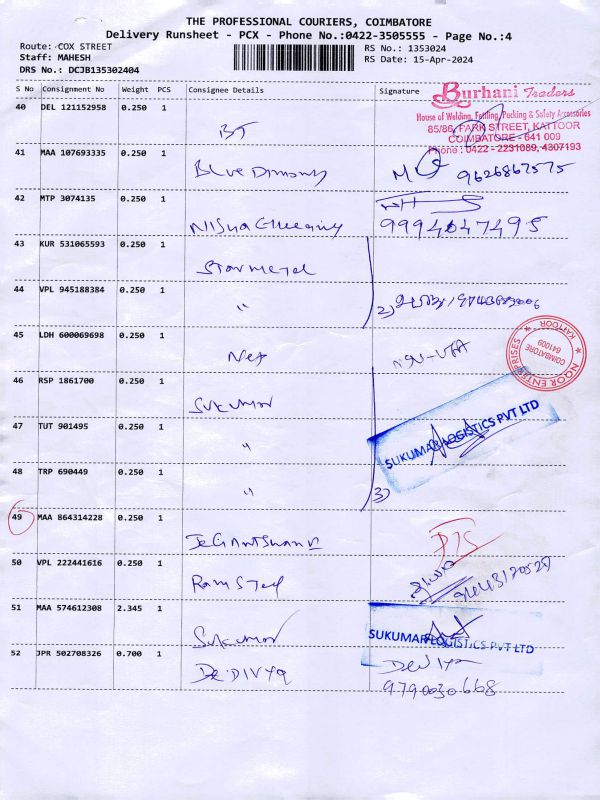 THE PROFESSIONAL COURIERS, COIMBATORE
Delivery Runsheet - PCX - Phone No.:0422-3505555 - Page No.:4
Route: COX STREET
RS No.: 1353024
Staff: MAHESH
RS Date: 15-Apr-2024
DRS No.: DCJB135302404
S No Consignment No Weight PCS Consignee Details Signature
Burhani Traders
House of Welding, Footing, Packing & Safety Accessories
85/86, PARK STREET, KATTOOR
COIMBATORE - 641 009
Phone : 0422 - 2231089, 4307193
40 DEL 121152958 0.250 1
BT
41 MAA 107693335 0.250 1
Blue Dimond 9626867575
42 MTP 3074135 0.250 1
9994047495
43 KUR 531065593 0.250 1
Star metal
44 VPL 945188384 0.250 1
" 2)
45 LDH 600069698 0.250 1
NOOR ENTERPRISES
COIMBATORE
641009
KATTOOR
46 RSP 1861700 0.250 1
Sukumar
SUKUMAR LOGISTICS PVT LTD
47 TUT 901495 0.250 1
"
48 TRP 690449 0.250 1
" 3)
49 MAA 864314228 0.250 1
50 VPL 222441616 0.250 1
Ram Steel
51 MAA 574612308 2.345 1
Sukumar
SUKUMAR LOGISTICS PVT LTD
52 JPR 502708326 0.700 1
9790030668